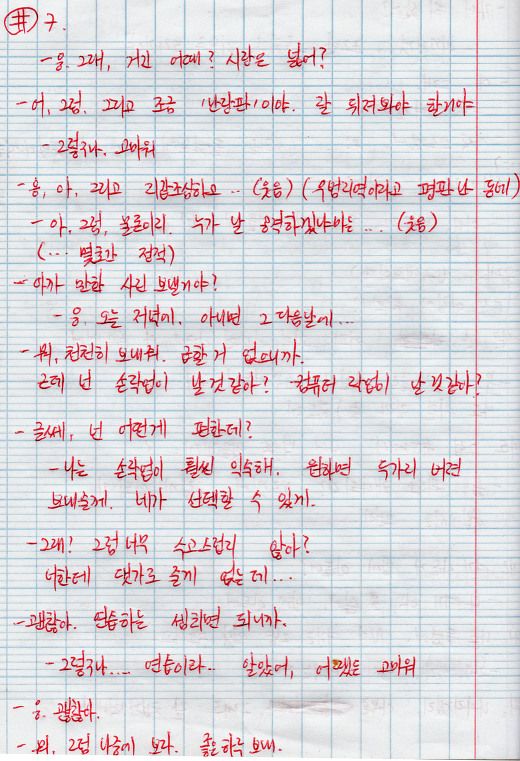 # 7.
- 응. 그래, 거긴 어때? 사람은 넓어?
- 어, 그럼. 그리고 조금 '난장판'이야. 잘 뒤져봐야 할거야
- 그렇구나. 고마워
- 응, 아, 그리고 길 조심하고.. (웃음) (우범지역이라고 평판난 동네)
- 아, 그럼, 물론이지. 누가 날 공격하겠냐마는... (웃음)
(... 몇초간 정적)
- 아까 말한 사진 보낼거야?
- 응. 오늘 저녁에. 아니면 그 다음날에...
- 뭐, 천천히 보내줘. 급할 거 없으니까.
근데 넌 손작업이 날것같아? 컴퓨터 작업이 날것같아?
- 글쎄, 넌 어떤게 편한데?
- 나는 손작업이 훨씬 익숙해. 원하면 두가지 버젼
보내줄게. 네가 선택할 수 있게.
- 그래? 그럼 너무 수고스럽지 않아?
너한테 댓가로 줄게 없는데...
- 괜찮아. 연습하는 셈치면 되니까.
- 그렇구나.... 연습이라.. 알았어, 어쨌든 고마워
- 응. 괜찮아.
- 뭐, 그럼 나중에 보자. 좋은하루 보내.